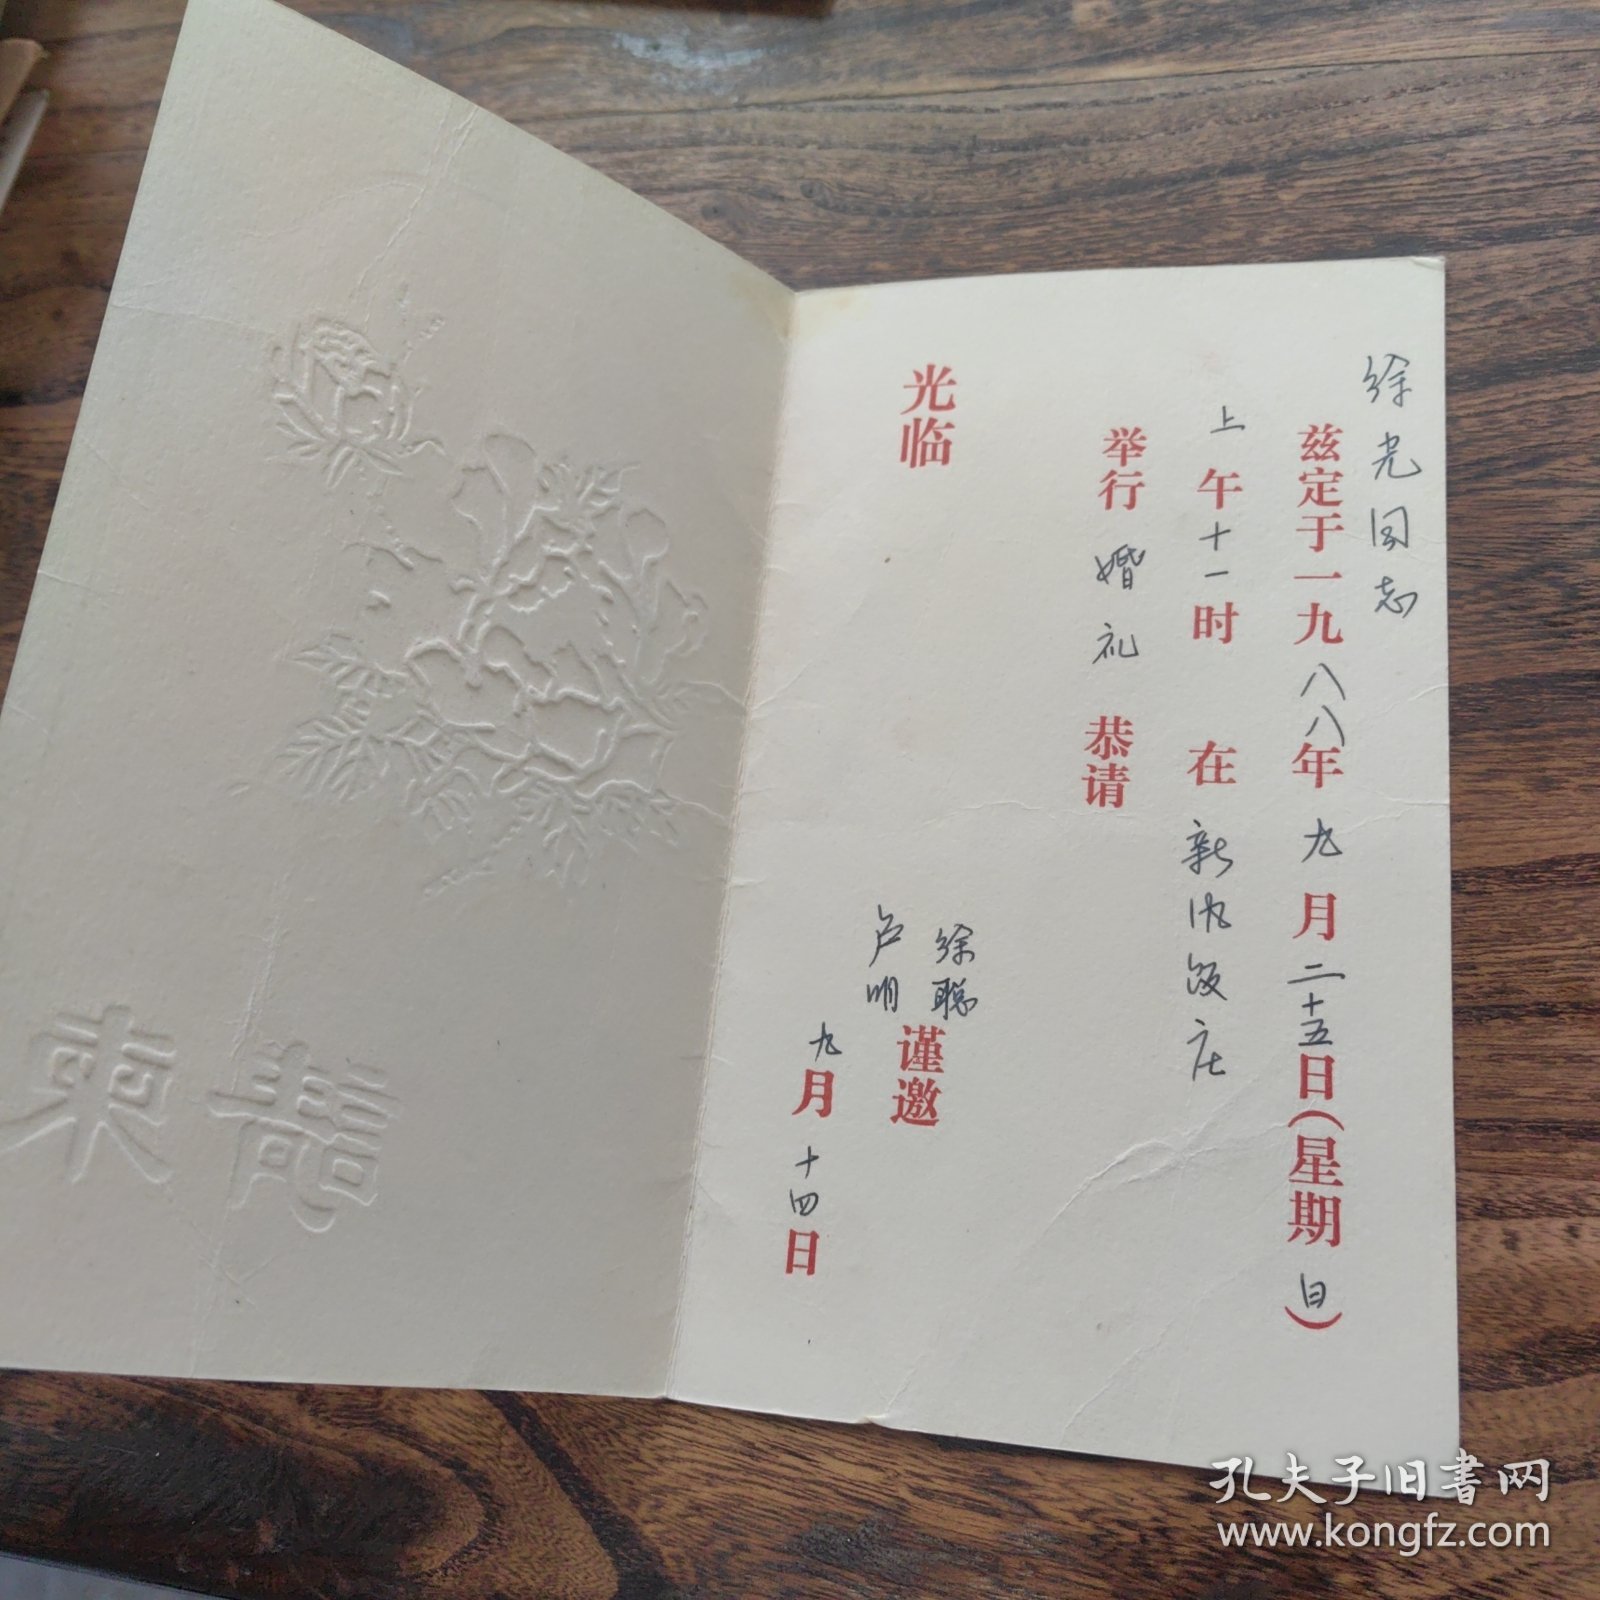 徐光同志
兹定于一九八八年九月二十五日(星期日)
上午十一时 在新帆饭庄
举行婚礼 恭请
光临
徐聪
卢明
谨邀
九月十四日
请柬
孔夫子旧书网
www.kongfz.com